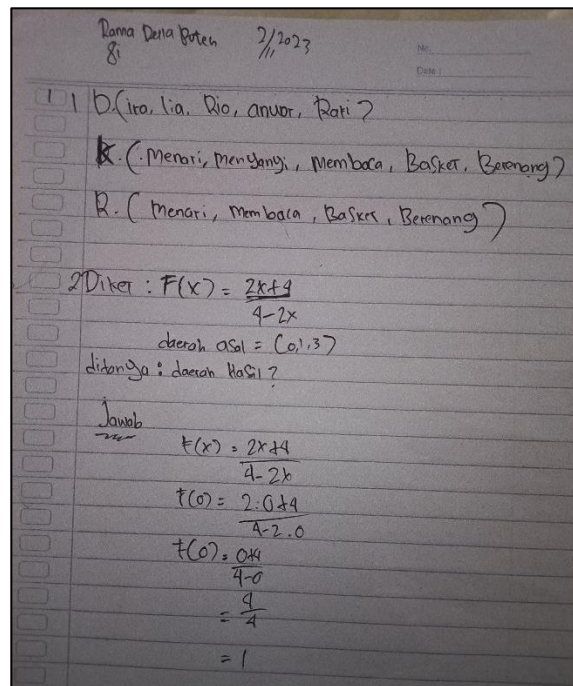 Rama Dena Poten 2/11/2023
8i
No.
Date :
1 1 D.(ira, lia, Rio, anwar, Rari)
K. (Menari, menyangi, membaca, Basket, Berenang)
R. ( menari, membaca, Basket, Berenang)
2 Diket : F(x) = 2x+4 / 4-2x
daerah asal = (0,1,3)
ditanya : daerah Hasil ?
Jawab
f(x) = 2x+4 / 4-2x
f(0) = 2.0+4 / 4-2.0
f(0) = 0+4 / 4-0
= 4 / 4
= 1